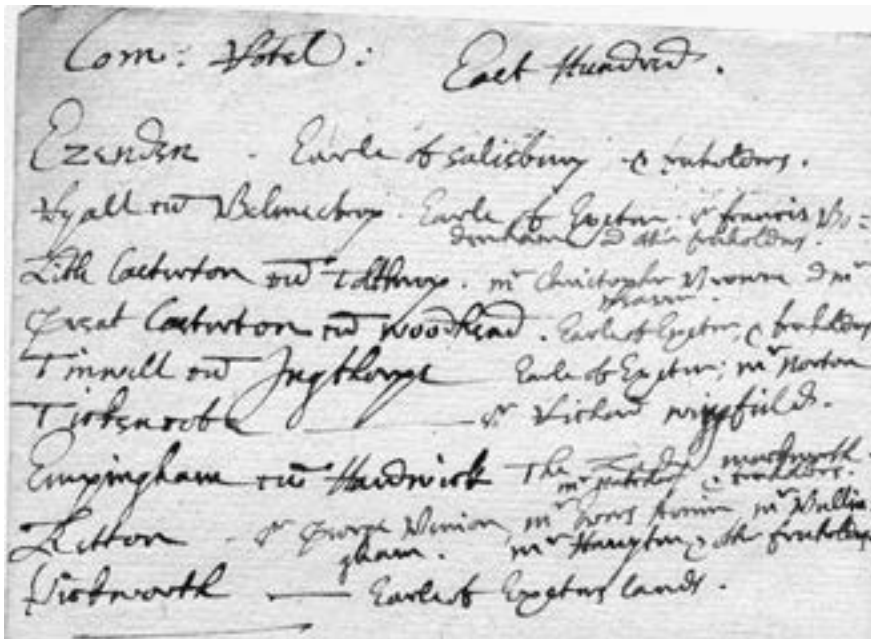 Com: Rotel: East Hundred.
Ezenden - Earle of Salisbury & freholders.
Ryall cu Belmesthrop. Earle of Exeter. Sr francis Bo=
denham & other freholders.
Litle Casterton cu Tolthrop. mr Christopher Browne & mr
Great Casterton cu woodhead. Earle of Exeter, & freholders
Tinwell cu Ingthorpe Earle of Exeter; mr Norton
Tickencote Sr Richard wingfield.
Empingham cu Hardwick The Lady mackworth.
mr & freholders.
Ketton - Sr George mr mr
gham. mr & other freholders
Pickworth Earle of Exeters lands.